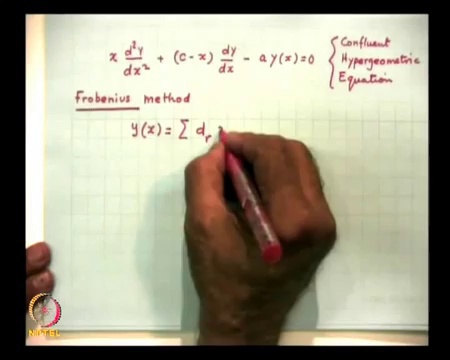 x d²y/dx² + (c-x) dy/dx - a y(x) = 0 { Confluent Hypergeometric Equation
Frobenius method
y(x) = Σ d_r
NPTEL